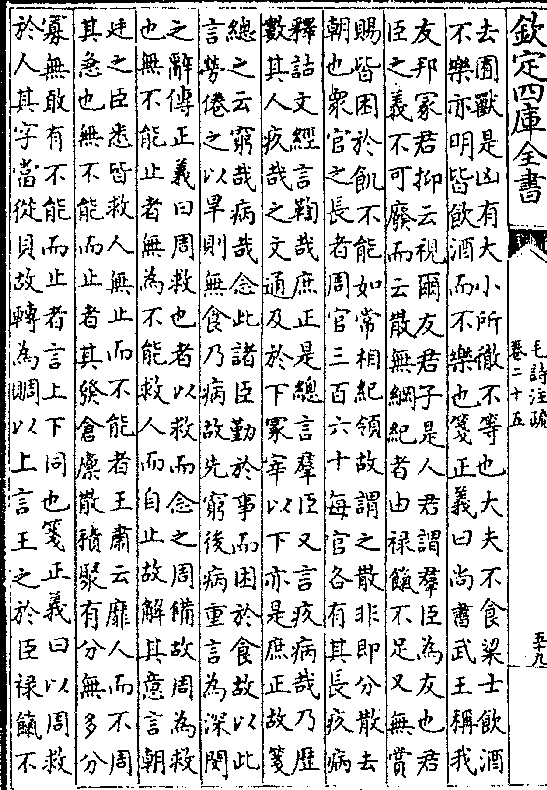 欽定四庫全書
毛詩注疏
卷二十五
五十九
去囿獸是凶有大小所徹不等也大夫不食梁士飲酒
不樂亦明皆飲酒而不樂也箋正義曰尚書武王稱我
友邦冢君抑云視爾友君子是人君謂羣臣為友也君
臣之義不可廢而云散無綱紀者由禄餼不足又無賞
賜皆困於飢不能如常相紀領故謂之散非即分散去
朝也衆官之長者周官三百六十每官各有其長疚病
釋詁文經言鞫哉庶正是總言羣臣又言疚病哉乃歴
數其人疚哉之文通及於下冢宰以下亦是庶正故箋
總之云窮哉病哉念此諸臣勤於事而困於食故以此
言勞倦之以旱則無食乃病故先窮後病重言為深閔
之辭傳正義曰周救也者以救而念之周備故周為救
也無不能止者無為不能救人而自止故解其意言朝
廷之臣悉皆救人無止而不能者王肅云靡人而不周
其急也無不能而止者其發倉廩散積聚有分無多分
寡無敢有不能而止者言上下同也箋正義曰以周救
於人其字當從貝故轉為賙以上言王之於臣禄餼不